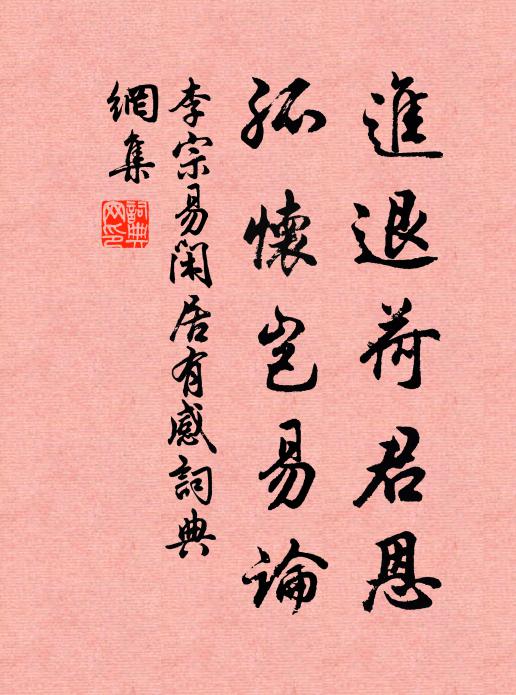 進退荷君恩
孤懷豈易論
李宗易閑居有感詞典
網集
詞典
網印